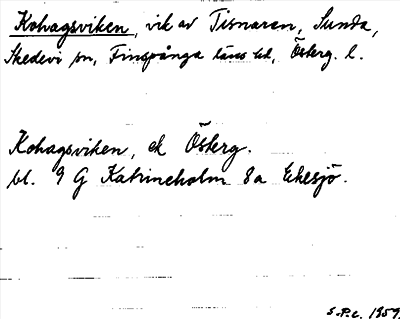 Kohagsviken, vik av Tisnaren, Sunda,
Skedevi sn, Finspånga läns hd, Österg. l.
Kohagsviken, ek Österg.
bl. 9 G Katrineholm 8a Ekesjö.
S.P.C. 1959